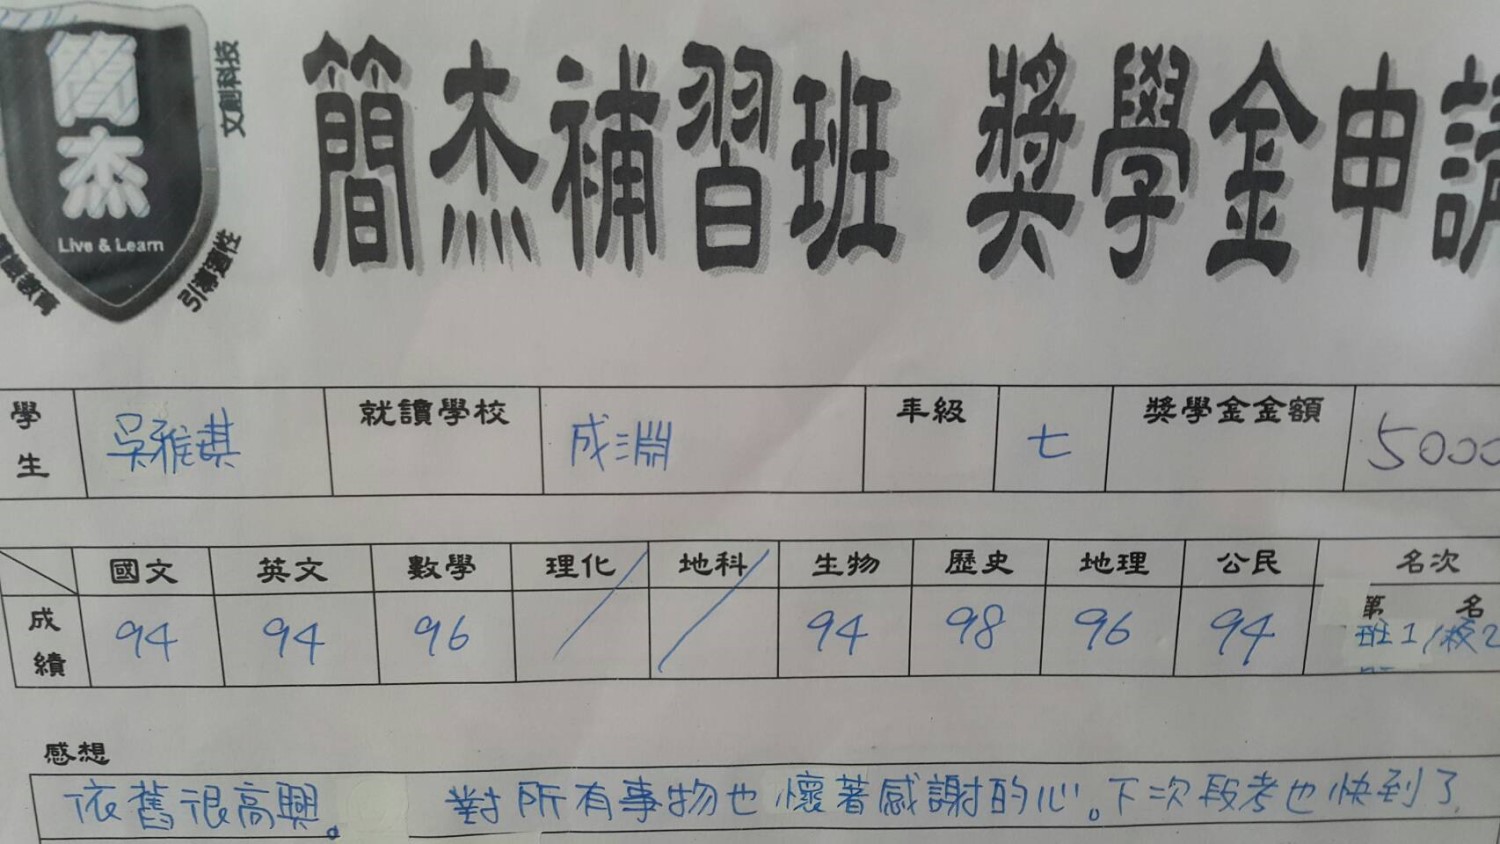 簡杰
Live & Learn
文創科技
引導適性
簡杰補習班 獎學金申請
學生 吳雅琪 就讀學校 成淵 年級 七 獎學金金額 5000
國文 英文 數學 理化 地科 生物 歷史 地理 公民 名次
成績 94 94 96 94 98 96 94 第 名
班1/校2
感想
依舊很高興。 對所有事物也懷著感謝的心。下次段考也快到了